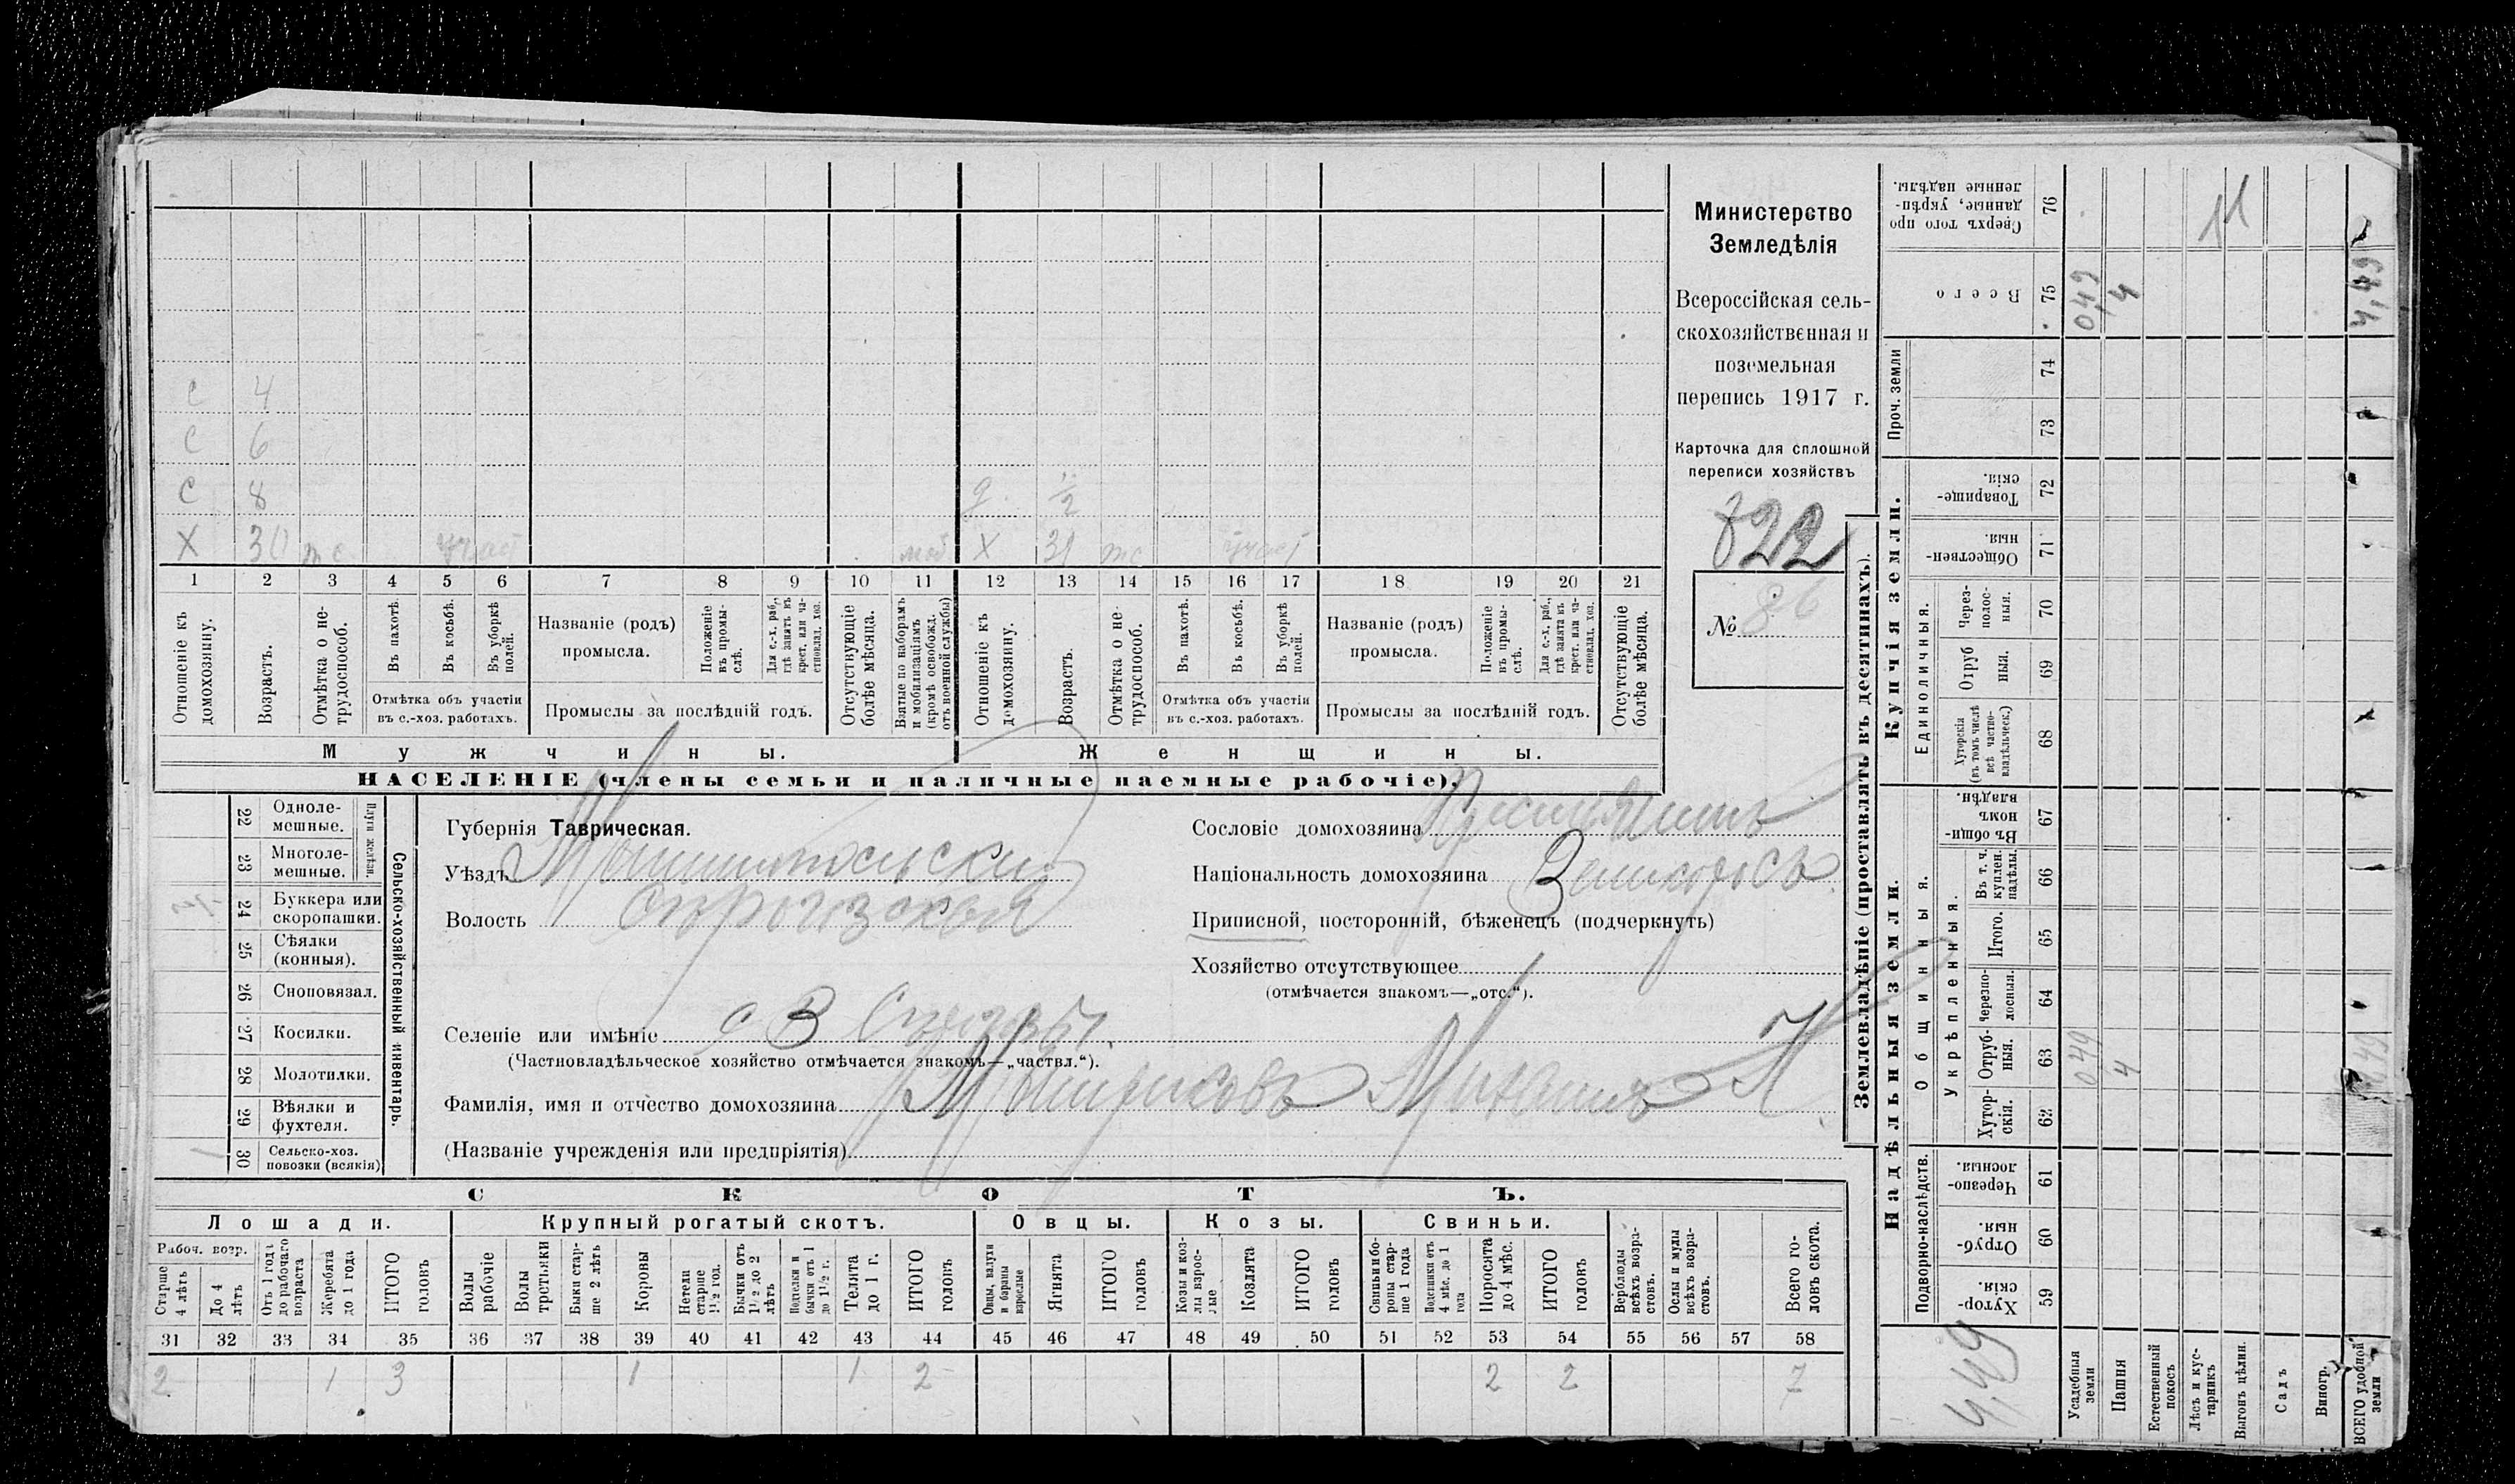 с 4
с 6
с 8 д. ½
X 30 участ моб. X 31 участ
1 2 3 4 5 6 7 8 9 10 11 12 13 14 15 16 17 18 19 20 21
Отношеніе къ домохозяину.
Возрастъ.
Отмѣтка о не-трудоспособ.
Въ пахотѣ.
Въ косьбѣ.
Въ уборкѣ полей.
Отмѣтка объ участіи
въ с.-хоз. работахъ.
Названіе (родъ)
промысла.
Положеніе въ промы-слѣ.
Для с.-х. раб., гдѣ занятъ въ крест. или ча-стновлад. хоз.
Промыслы за послѣдній годъ.
Отсутствующіе болѣе мѣсяца.
Взятые по наборамъ и мобилизаціямъ (кромѣ освобожд. отъ военной службы)
Отношеніе къ домохозяину.
Возрастъ.
Отмѣтка о не-трудоспособ.
Въ пахотѣ.
Въ косьбѣ.
Въ уборкѣ полей.
Отмѣтка объ участіи
въ с.-хоз. работахъ.
Названіе (родъ)
промысла.
Положеніе въ промы-слѣ.
Для с.-х. раб., гдѣ занята въ крест. или ча-стновлад. хоз.
Промыслы за послѣдній годъ.
Отсутствующіе болѣе мѣсяца.
Мужчины. Женщины.
НАСЕЛЕНІЕ (члены семьи и наличные наемные рабочіе).
Министерство
Земледѣлія
Всероссійская сель-
скохозяйственная и
поземельная
перепись 1917 г.
Карточка для сплошной
переписи хозяйствъ
822
№ 86
Сельско-хозяйственный инвентарь.
Плуги желѣзн.
22 Одноле-мешные.
23 Многоле-мешные.
24 Буккера или скоропашки.
25 Сѣялки (конныя).
26 Сноповязал.
27 Косилки.
28 Молотилки.
29 Вѣялки и фухтеля.
30 Сельско-хоз. повозки (всякія)
1
Губернія Таврическая.
Уѣздъ Мелитопольскій
Волость
Селеніе или имѣніе с В
(Частновладѣльческое хозяйство отмѣчается знакомъ—„частвл.“).
Фамилія, имя и отчество домохозяина Михаилъ
(Названіе учрежденія или предпріятія)
Сословіе домохозяина Крестьянинъ
Національность домохозяина Великороссъ
Приписной, посторонній, бѣженецъ (подчеркнуть)
Хозяйство отсутствующее
(отмѣчается знакомъ—„отс.“).
СКОТЪ.
Лошади. Крупный рогатый скотъ. Овцы. Козы. Свиньи.
Рабоч. возр.
Старше 4 лѣтъ
До 4 лѣтъ
Отъ 1 года до рабочаго возраста
Жеребята до 1 года
ИТОГО головъ
Волы рабочіе
Волы третьяки
Быки стар-ше 2 лѣтъ
Коровы
Нетели старше 1½ год.
Бычки отъ 1½ до 2 лѣтъ
Подтелки и бычки отъ 1 до 1½ г.
Телята до 1 г.
ИТОГО головъ
Овцы, валухи и бараны взрослые
Ягнята
ИТОГО головъ
Козы и коз-лы взрос-лые
Козлята
ИТОГО головъ
Свиньи и бо-ровы стар-ше 1 года
Подсвинки отъ 4 мѣс. до 1 года
Поросята до 4 мѣс.
ИТОГО головъ
Верблюды всѣхъ возра-стовъ.
Ослы и мулы всѣхъ возра-стовъ.
Всего го-ловъ скота.
31 32 33 34 35 36 37 38 39 40 41 42 43 44 45 46 47 48 49 50 51 52 53 54 55 56 57 58
2 1 3 1 1 2 2 2 7
Землевладѣніе (проставлять въ десятинахъ).
Надѣльныя земли. Купчія земли.
Подворно-наслѣдств.
Общинныя.
Укрѣпленныя.
Единоличныя.
Проч. земли
Хутор-скія. 59
Отруб-ныя. 60
Черезпо-лосныя. 61
Хутор-скія. 62
Отруб-ныя. 63
Черезпо-лосныя. 64
Итого. 65
Въ т. ч. куплен. надѣлы. 66
Въ общин-номъ владѣн. 67
Хуторскія (въ томъ числѣ всѣ частно-владѣльческ.) 68
Отруб ныя. 69
Через-полос-ныя. 70
Обществен-ныя. 71
Товарище-скія. 72
73
74
Всего 75
Сверхъ того про данные, укрѣп-ленные надѣлы. 76
Усадебныя земли 049 0,49
Пашня 4 4
Естественный покосъ
Лѣсъ и кус-тарникъ
Выгонъ цѣлин.
Садъ
Виногр.
ВСЕГО удобной земли 4,49 4,49
4,49
11